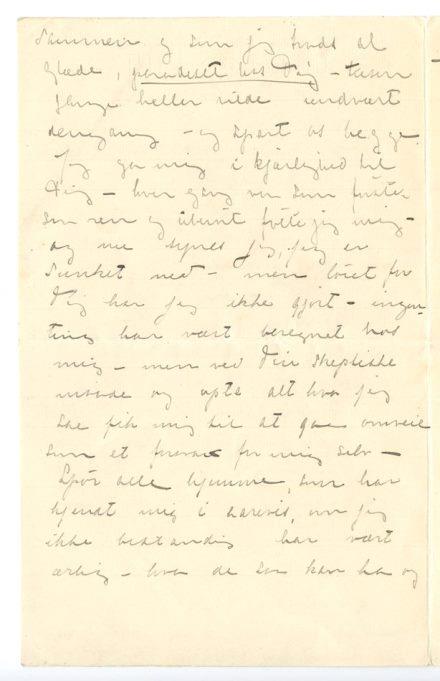 Sammen og som jeg trods al
Glæde, paradiset hos Dig – tusen
gange heller vilde undvært
dengang – og spart os begge.
Jeg ga mig i kjærlighed til
Dig – hver gang var som første
som ren og følte jeg mig –
og nu synes jeg, jeg er
sunket ned – men løiet for
Dig har jeg ikke gjort – ingen-
ting har vært beregnet hos
mig – men ved Din skeptiske
maade og alt hva jeg
sae fik mig til at gae omveie
som et forsvar for mig selv –
Spør alle hjemme, som har
kjendt mig i aarevis, om jeg
ikke bestandig har vært
ærlig – hva de saa kan ha og